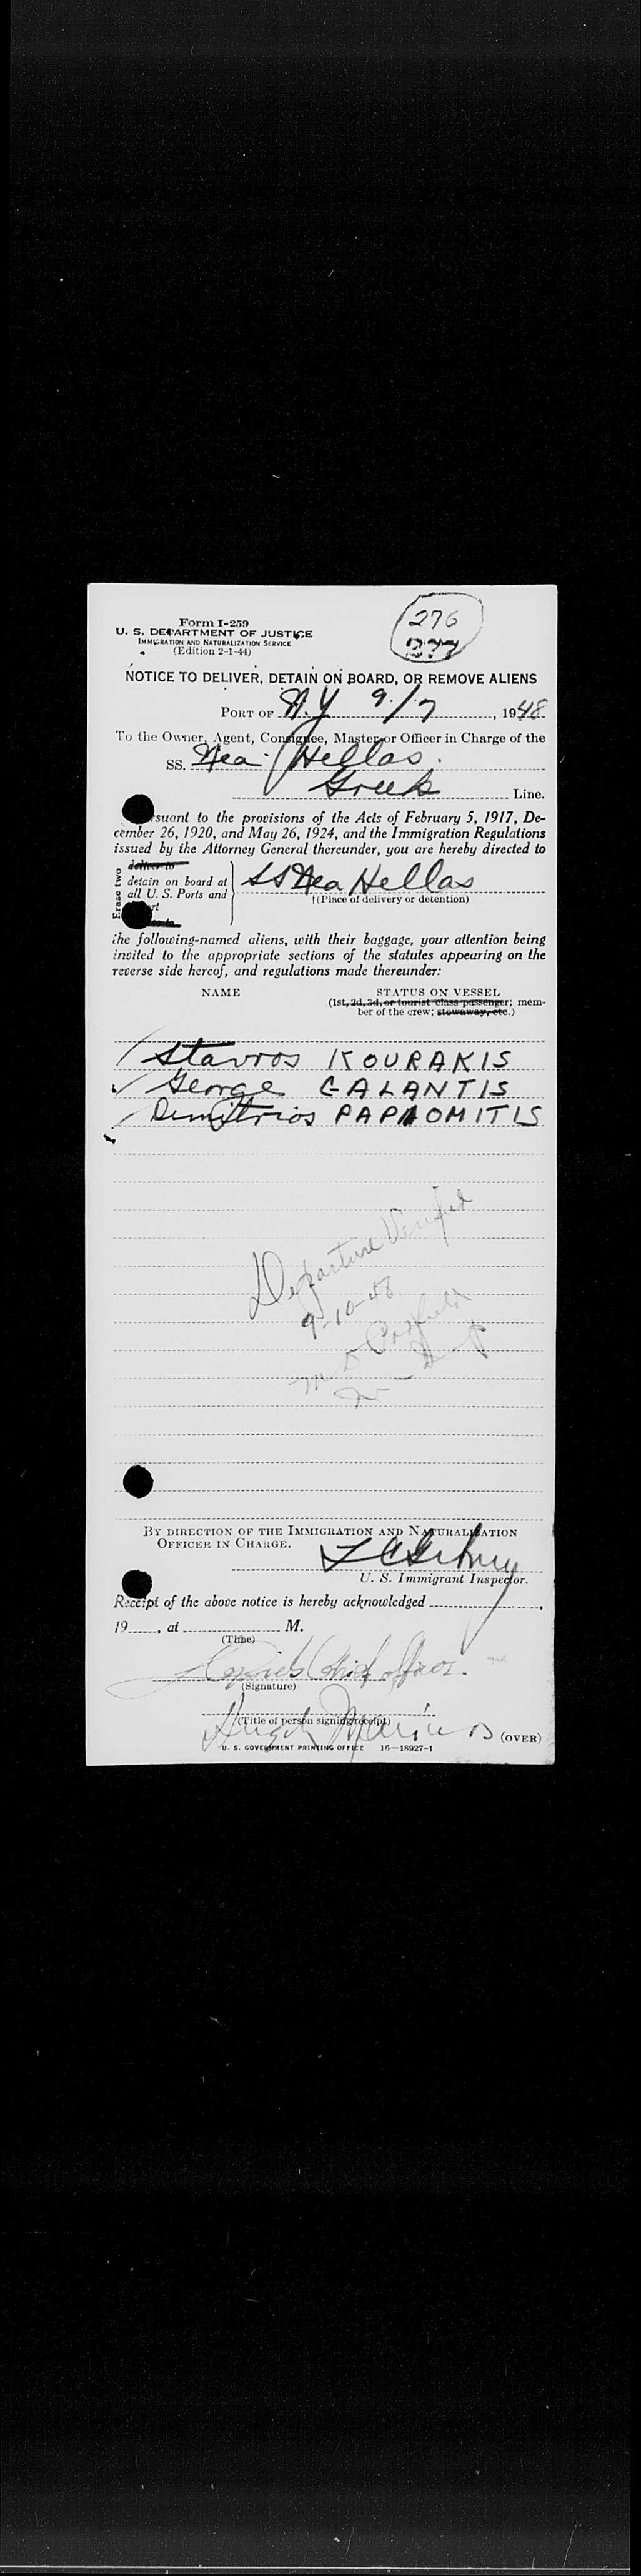 Form I-259
276
277
U. S. DEPARTMENT OF JUSTICE
IMMIGRATION AND NATURALIZATION SERVICE
(Edition 2-1-44)
NOTICE TO DELIVER, DETAIN ON BOARD, OR REMOVE ALIENS
PORT OF N.Y 9/7, 1948
To the Owner, Agent, Consignee, Master or Officer in Charge of the
SS. Nea Hellas.
Greek Line.
suant to the provisions of the Acts of February 5, 1917, De-
cember 26, 1920, and May 26, 1924, and the Immigration Regulations
issued by the Attorney General thereunder, you are hereby directed to
Erase two
deliver to
detain on board at
all U. S. Ports and
SS Nea Hellas
†(Place of delivery or detention)
the following-named aliens, with their baggage, your attention being
invited to the appropriate sections of the statutes appearing on the
reverse side hereof, and regulations made thereunder:
NAME
STATUS ON VESSEL
(1st, 2d, 3d, or tourist class passenger; mem-
ber of the crew; stowaway, etc.)
Stavros KOURAKIS
George GALANTIS
Dimitrios PAPAOMITIS
Departure Verified
9-10-48
BY DIRECTION OF THE IMMIGRATION AND NATURALIZATION
OFFICER IN CHARGE.
U. S. Immigrant Inspector.
Receipt of the above notice is hereby acknowledged
19, at M.
(Time)
Chief officer.
(Signature)
(Title of person signing receipt)
Hugh Marinos
U. S. GOVERNMENT PRINTING OFFICE 16—18927-1
(OVER)